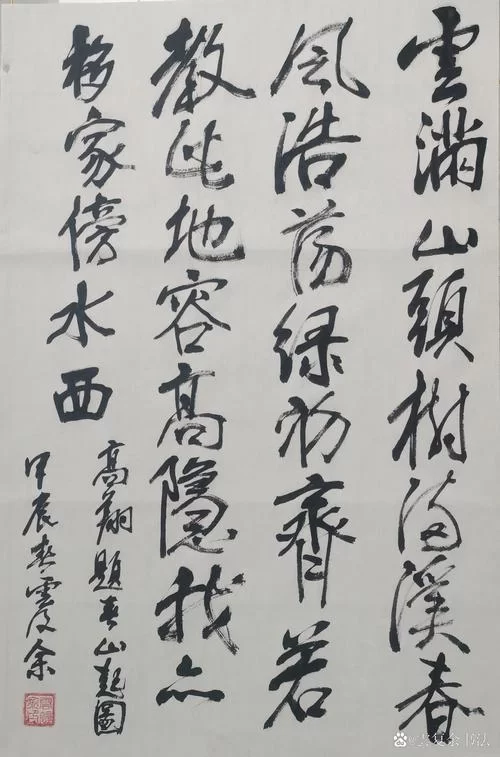 雲滿山頭樹滿溪春
風浩蕩綠初齊若
教此地容高隱我亦
移家傍水西
高翔題春山圖
甲辰春雲復余
@雲复余书法